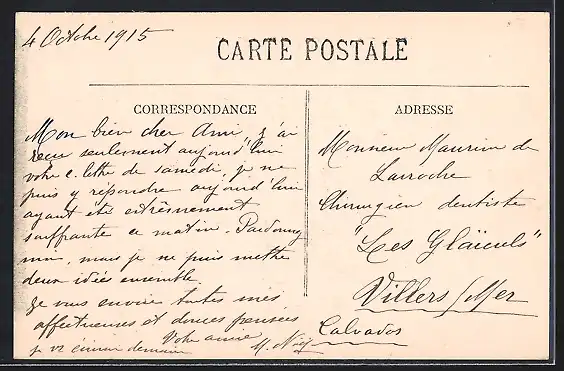 4 Octbre 1915
CARTE POSTALE
CORRESPONDANCE
Mon bien cher Ami, j'ai
reçu seulement aujourd'hui
votre c. lettre de samedi, je ne
puis y répondre aujourd'hui
ayant été extrêmement
souffrante ce matin. Pardonnez
moi, mais je ne puis mettre
deux idées ensemble
Je vous envoie toutes mes
affectueuses et douces pensées
Votre amie
je vs écrirai demain
ADRESSE
Monsieur Maurice de
Larroche
Chirurgien dentiste
"Les Glaïeuls"
Villers s/Mer
Calvados